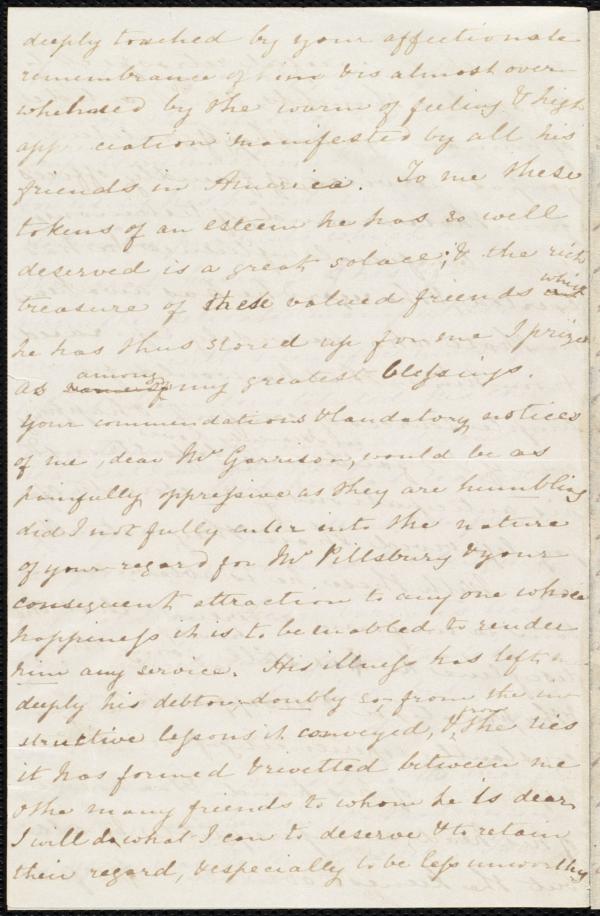 deeply touched by your affectionate
remembrance of him & is almost over
whelmed by the warm of feeling & high
app ciation manifested by all his
friends in America. To me these
tokens of an esteem he has so well
deserved is a great solace; & the rich
treasure of these valued friends which
he has thus stored up for me I prize
as among my greatest blessings.
Your commendations & laudatory notices
of me, dear Mr Garrison, would be as
painfully oppressive as they are humbling
did I not fully enter into the nature
of your regard for Mr Pillsbury & your
consequent attraction to any one whose
happiness it is to be enabled to render
him any service. His illness has left
deeply his debtor–doubly so, from the in
structive lessons it conveyed, & from the ties
it has formed & rivetted between me
& the many friends to whom he is dear,
I will do what I can to deserve & to retain
their regard, & especially to be less unworthy